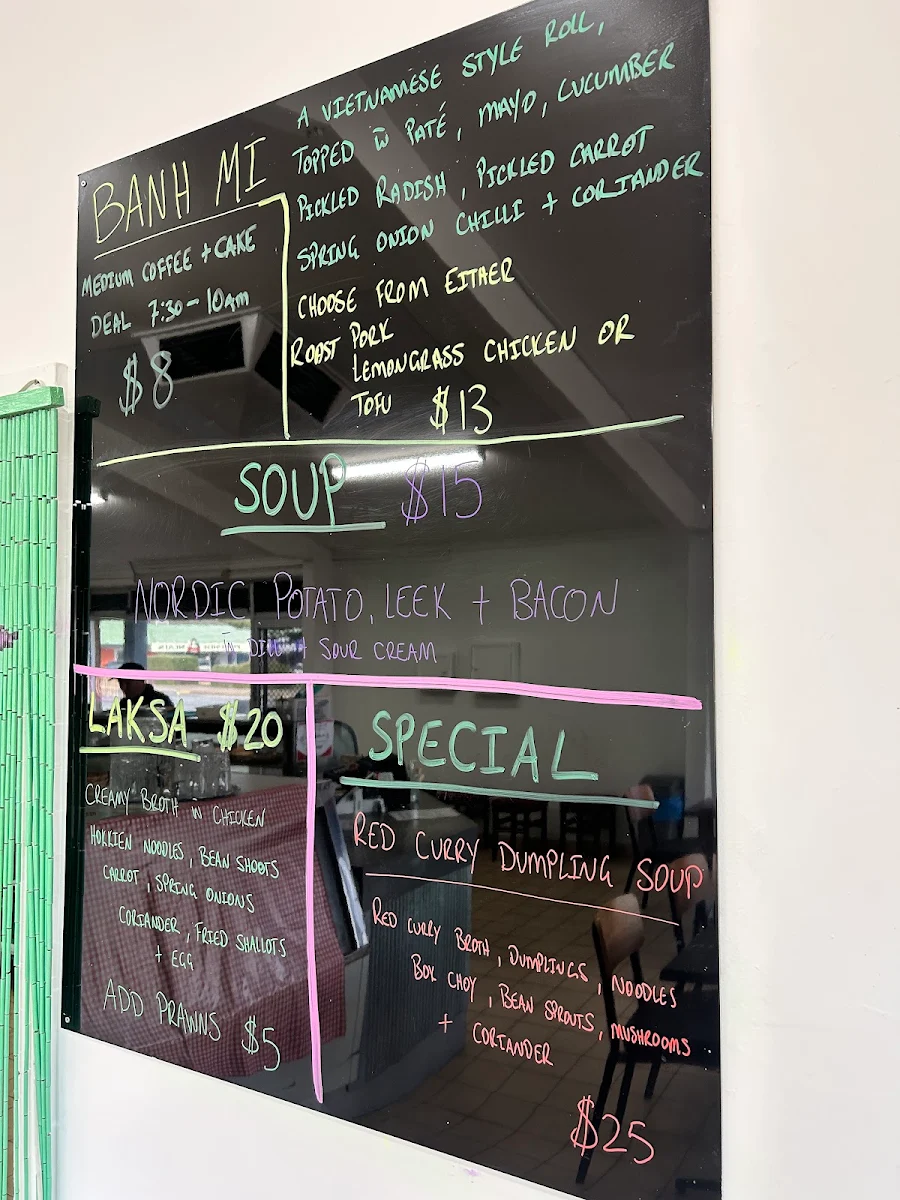 BANH MI
A VIETNAMESE STYLE ROLL,
TOPPED W PATÉ, MAYO, CUCUMBER
PICKLED RADISH, PICKLED CARROT
SPRING ONION CHILLI + CORIANDER
CHOOSE FROM EITHER
ROAST PORK
LEMONGRASS CHICKEN OR
TOFU $13
MEDIUM COFFEE + CAKE
DEAL 7:30-10am
$8
SOUP $15
NORDIC POTATO, LEEK + BACON
W DILL + SOUR CREAM
LAKSA $20
CREAMY BROTH W CHICKEN
HOKKIEN NOODLES, BEAN SHOOTS
CARROT, SPRING ONIONS
CORIANDER, FRIED SHALLOTS
+ EGG
ADD PRAWNS $5
SPECIAL
RED CURRY DUMPLING SOUP
RED CURRY BROTH, DUMPLINGS, NOODLES
BOK CHOY, BEAN SPROUTS, MUSHROOMS
+ CORIANDER
$25